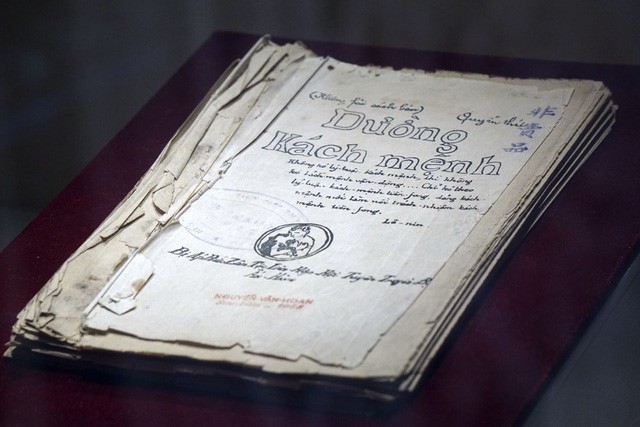 (Không phải sách bán)
Quyển thứ
非賣品
Đường
Kách mệnh
Không có lý luận kách mệnh thì không
có kách mệnh vận động.... Chỉ có theo
lý luận kách mệnh tiền fong, đảng kách
mệnh mới làm nổi trách nhiệm kách
mệnh tiền fong.
Lê-nin
Bị Áp Bức Dân Tộc Liên Hiệp Hội Tuyên Truyền Bộ
NGUYỄN VĂN-HOAN